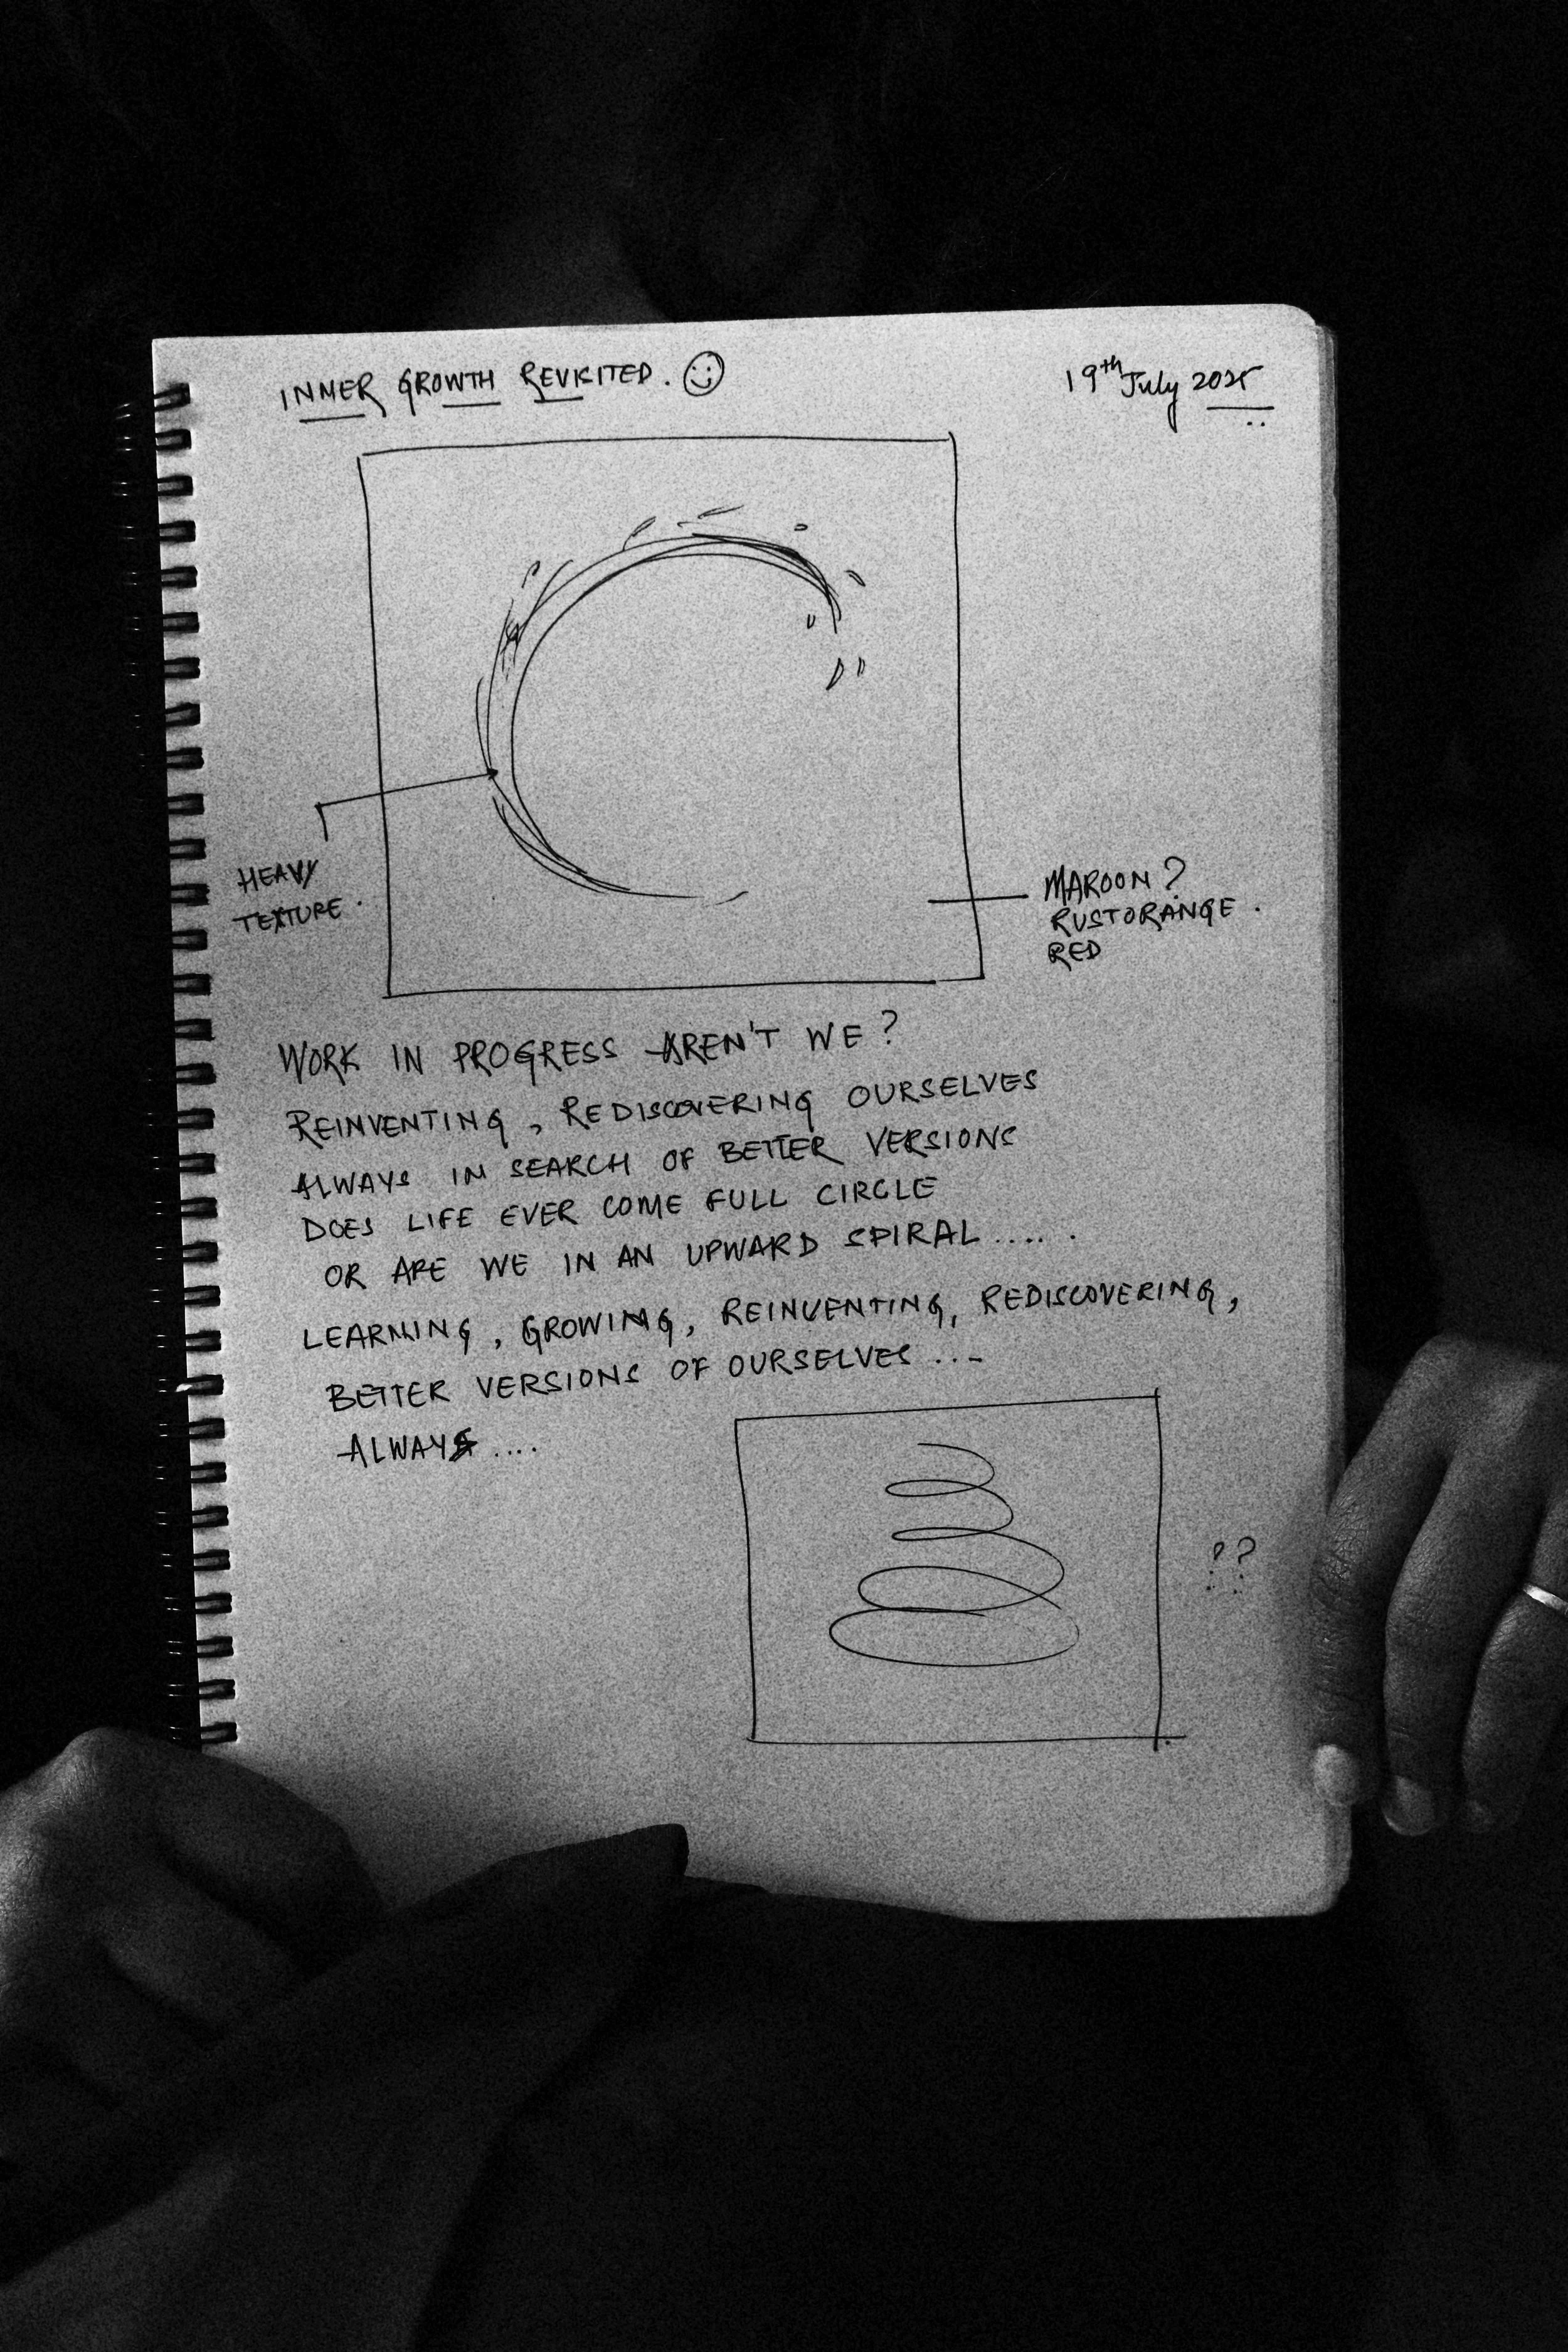 INNER GROWTH REVISITED. ☺
19th July 2025
HEAVY
TEXTURE.
MAROON?
RUSTORANGE.
RED
WORK IN PROGRESS AREN'T WE?
REINVENTING, REDISCOVERING OURSELVES
ALWAYS IN SEARCH OF BETTER VERSIONS
DOES LIFE EVER COME FULL CIRCLE
OR ARE WE IN AN UPWARD SPIRAL.....
LEARNING, GROWING, REINVENTING, REDISCOVERING,
BETTER VERSIONS OF OURSELVES...
ALWAYS....
??